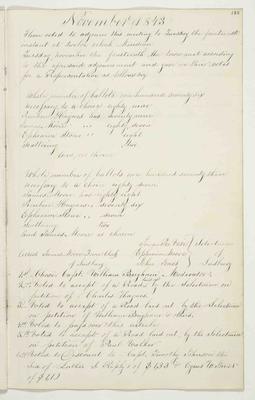 November 1843
Then voted to adjourn this meeting to Tuesday the fourteenth
instant at twelve o'clock Meridian
Tuesday November the fourteenth the town met according
to the aforesaid adjournment and gave in their votes
for a Representative as follows viz
Whole number of ballots one hundred seventy six
necessary to a choice eighty nine
Reuben Haynes had seventy nine
James Moore " " eighty seven
Ephraim Moore " " eight
Scattering two
and no choice
Whole number of ballots one hundred seventy three
necessary to a choice eighty seven
James Moore had eighty eight
Reuben Haynes seventy six
Ephraim Moore " seven
Scattering two
and James Moore is chosen
Selectmen
Ephraim Moore of
Sudbury
of Sudbury
1st Chose Capt. William Brigham Moderator
2nd Voted to accept of a Road by the Selectmen on
petition of Charles Haynes
3d Voted to accept of a Road laid out by the Selectmen
on petition of William Brigham & others
4th Voted to pass over this article
5th Voted to accept of a Road laid out by the Selectmen
on petition of Paul Walker
6th Voted to Discount to Capt.